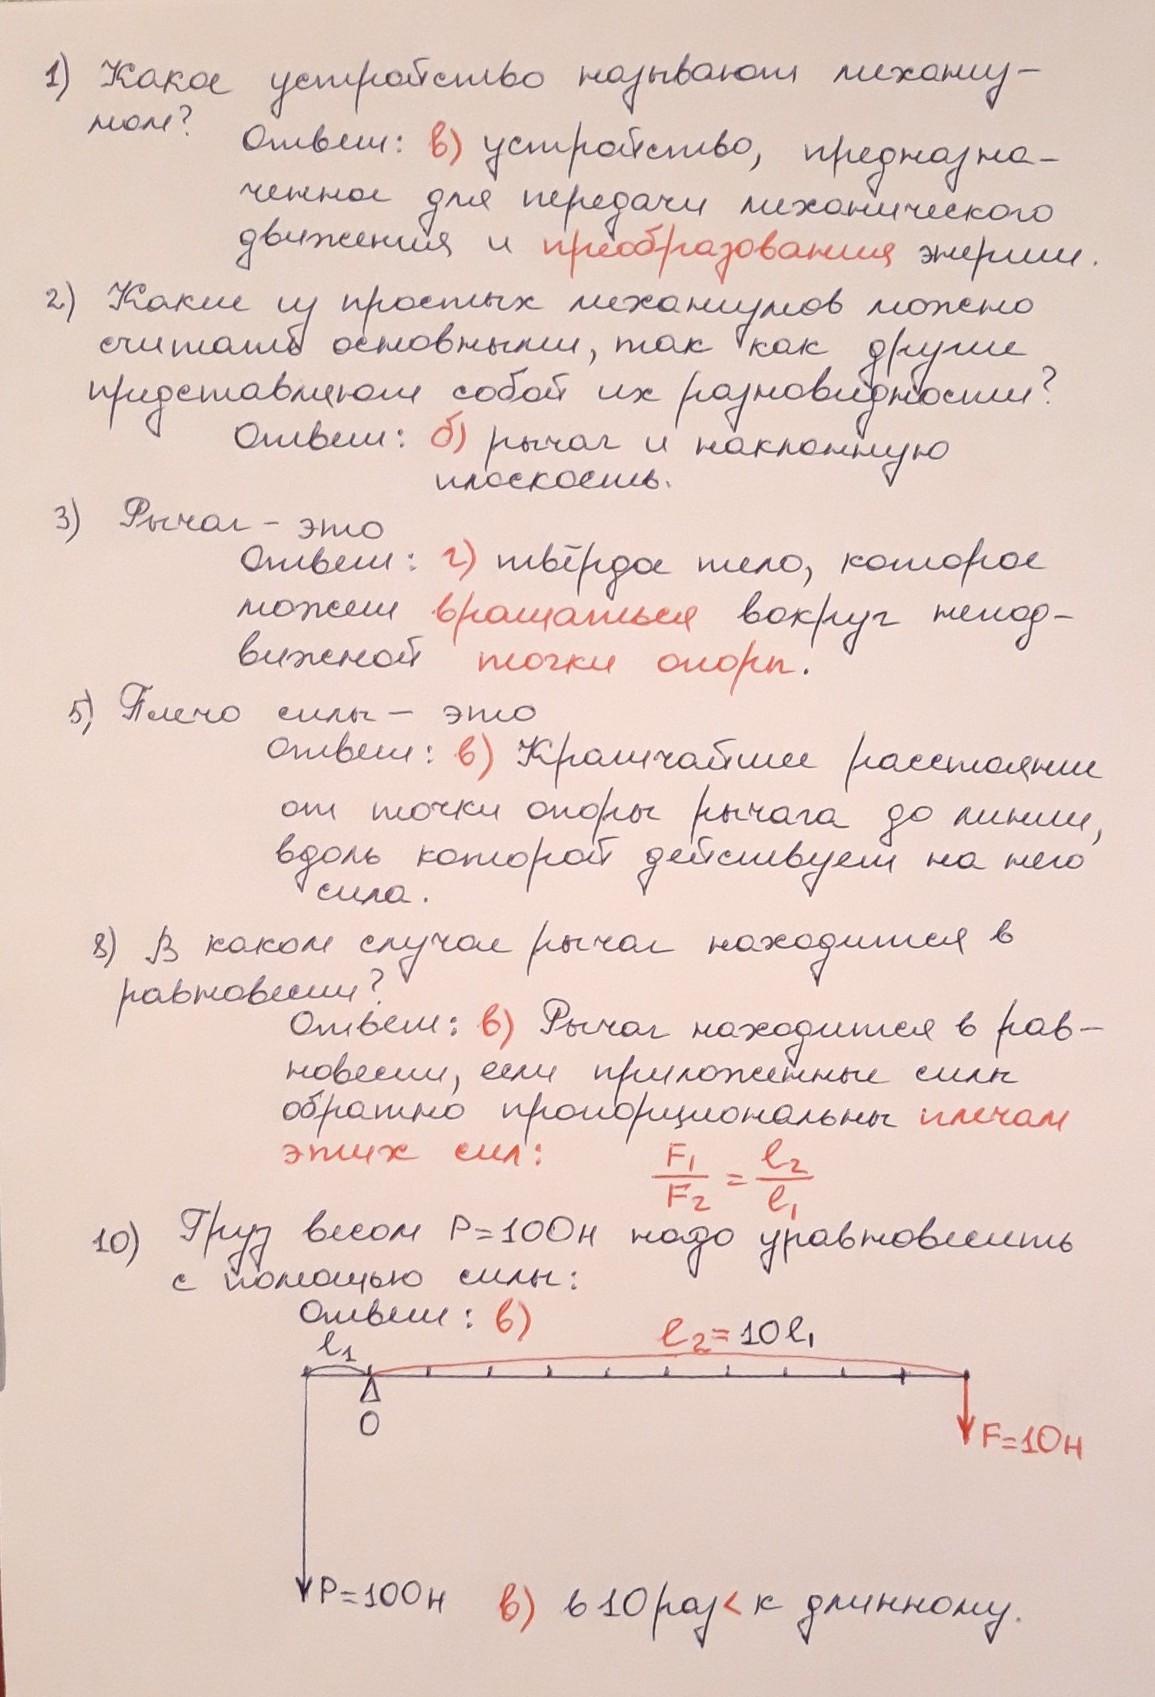 1) Какое устройство называют механиз-
мом?
Ответ: в) устройство, предназна-
ченное для передачи механического
движения и преобразования энергии.
2) Какие из простых механизмов можно
считать основными, так как другие
представляют собой их разновидности?
Ответ: б) рычаг и наклонную
плоскость.
3) Рычаг – это
Ответ: г) твёрдое тело, которое
может вращаться вокруг непод-
вижной точки опоры.
5) Плечо силы – это
Ответ: в) Кратчайшее расстояние
от точки опоры рычага до линии,
вдоль которой действует на него
сила.
8) В каком случае рычаг находится в
равновесии?
Ответ: в) Рычаг находится в рав-
новесии, если приложенные силы
обратно пропорциональны плечам
этих сил: F₁/F₂ = l₂/l₁
10) Груз весом P=100н надо уравновесить
с помощью силы:
Ответ: в)
l₁ l₂=10l₁
O
F=10н
P=100н в) в 10 раз < к длинному.